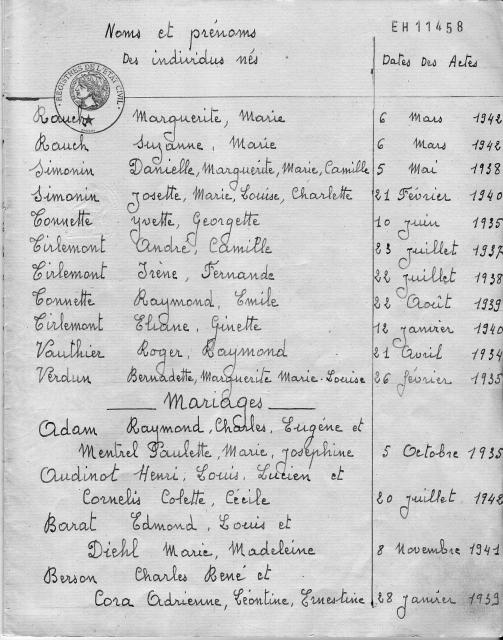 EH11458
Noms et prénoms
Des individus nés
Dates Des Actes
REGISTRES DE L'ETAT CIVIL
Rauch Marguerite, Marie 6 Mars 1942
Rauch Suzanne, Marie 6 Mars 1942
Simonin Danielle, Marguerite, Marie, Camille 5 Mai 1938
Simonin Josette, Marie, Louise, Charlette 21 Février 1940
Tonnette Yvette, Georgette 10 juin 1935
Tirlemont André, Camille 23 juillet 1937
Tirlemont Irène, Fernande 22 juillet 1938
Tonnette Raymond, Emile 22 Août 1939
Tirlemont Eliane, Ginette 12 janvier 1940
Vauthier Roger, Raymond 21 Avril 1934
Verdun Bernadette, Marguerite Marie-Louise 26 février 1935
Mariages
Adam Raymond, Charles, Eugène et
Mentrel Paulette, Marie, Joséphine 5 Octobre 1935
Audinot Henri, Louis, Lucien et
Cornelis Colette, Cécile 20 juillet 1942
Barat Edmond, Louis et
Diehl Marie, Madeleine 8 Novembre 1941
Berson Charles René et
Cora Adrienne, Léontine, Ernestine 28 janvier 1939